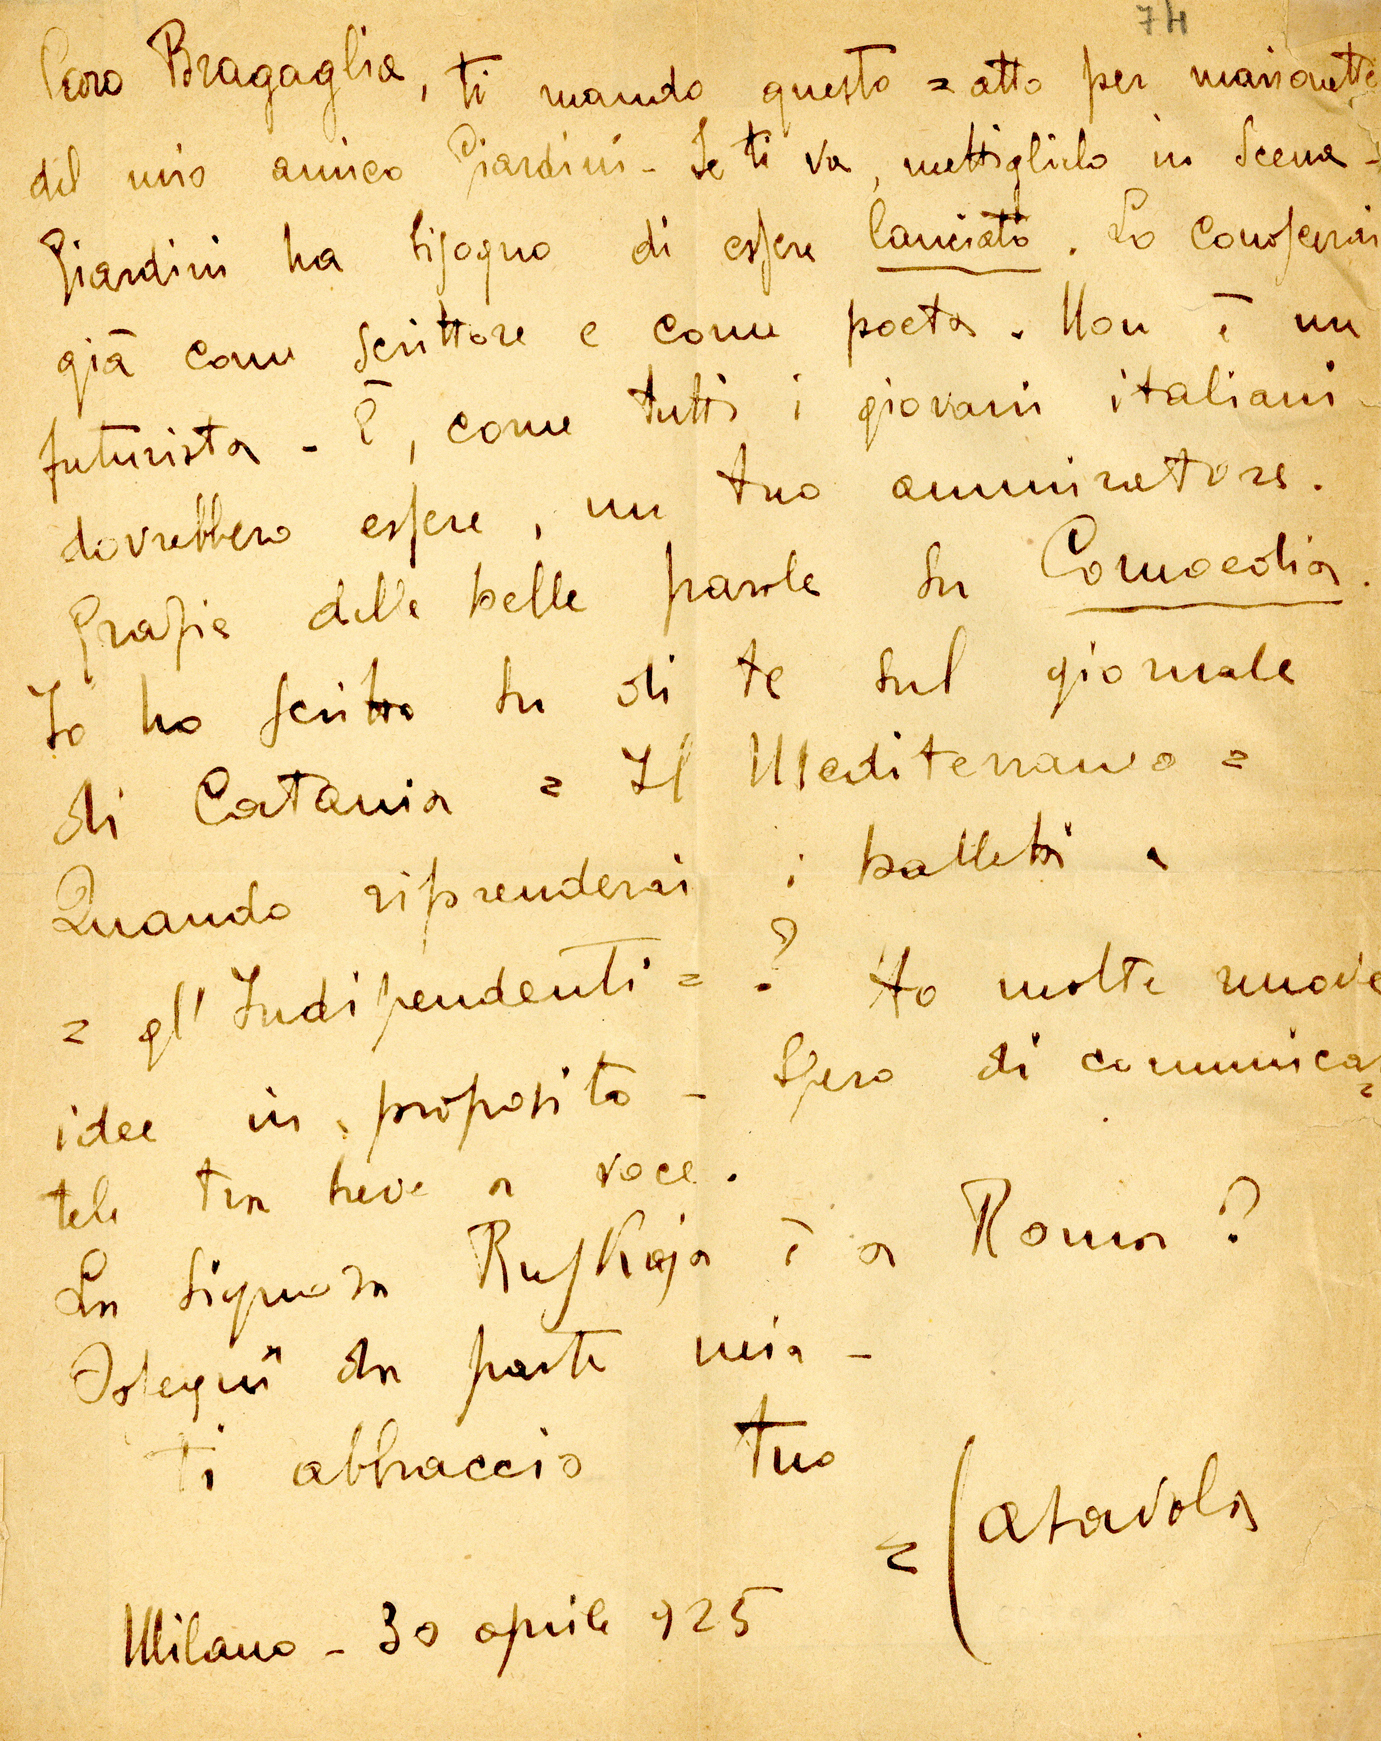 74
Caro Bragaglia, ti mando questo = atto per marionette
del mio amico Giardini - Se ti va, mettiglielo in scena -
Giardini ha bisogno di essere lanciato. Lo conoscerai
già come scrittore e come poeta. Non è un
futurista - È, come tutti i giovani italiani
dovrebbero essere, un tuo ammiratore.
Grazie delle belle parole su Comoedia.
Io ho scritto su di te sul giornale
di Catania = Il Mediterraneo =
Quando riprenderai i balletti a
= gl'Indipendenti = ? Ho molte nuove
idee in proposito - Spero di comunicar=
tele tra breve a voce.
La signora Ruskaja è a Roma?
Ossequi da parte mia -
ti abbraccio tuo
= Casavola
Milano - 30 aprile 925